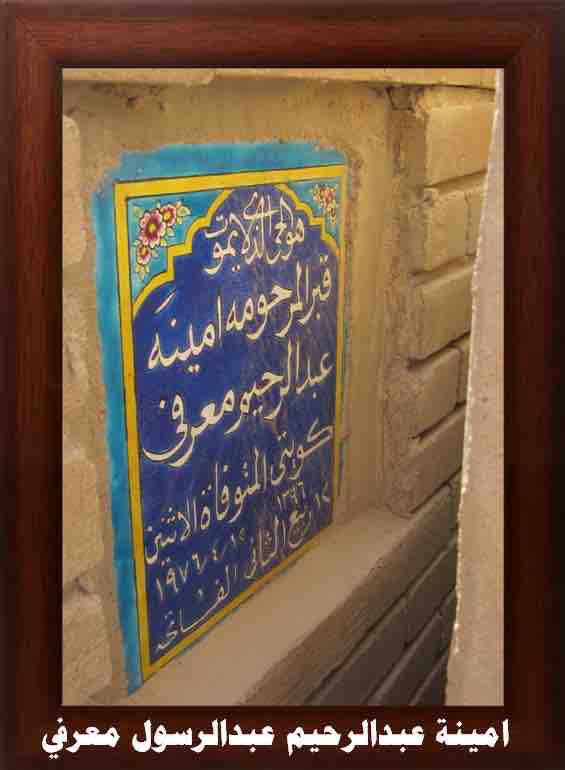 هو الحي الذي لا يموت
قبر المرحومه امينه
عبدالرحيم معرفي
كويتي المتوفاة الاثنين
١٢ ربيع الثاني ١٣٩٦
١٩٧٦/٤/١٢ الفاتحه
امينة عبدالرحيم عبدالرسول معرفي